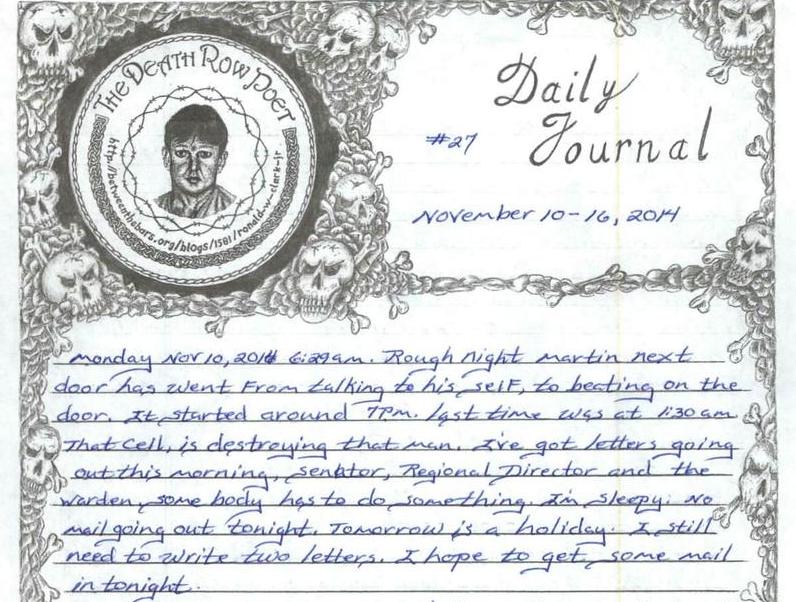 THE DEATH ROW POET
http://betweenthebars.org/blogs/1581/ronald-w-clark-jr.
Daily
Journal
#27
November 10-16, 2014
monday Nov 10, 2014 6:29am. Rough night martin next
door has went From talking to his self, to beating on the
door. It started around 7PM. last time was at 1:30 am.
That cell, is destroying that man. I've got letters going
out this morning, senator, Regional Director and the
warden, some body has to do something. I'm sleepy. No
mail going out tonight. Tomorrow is a holiday. I still
need to write two letters. I hope to get some mail
in tonight.